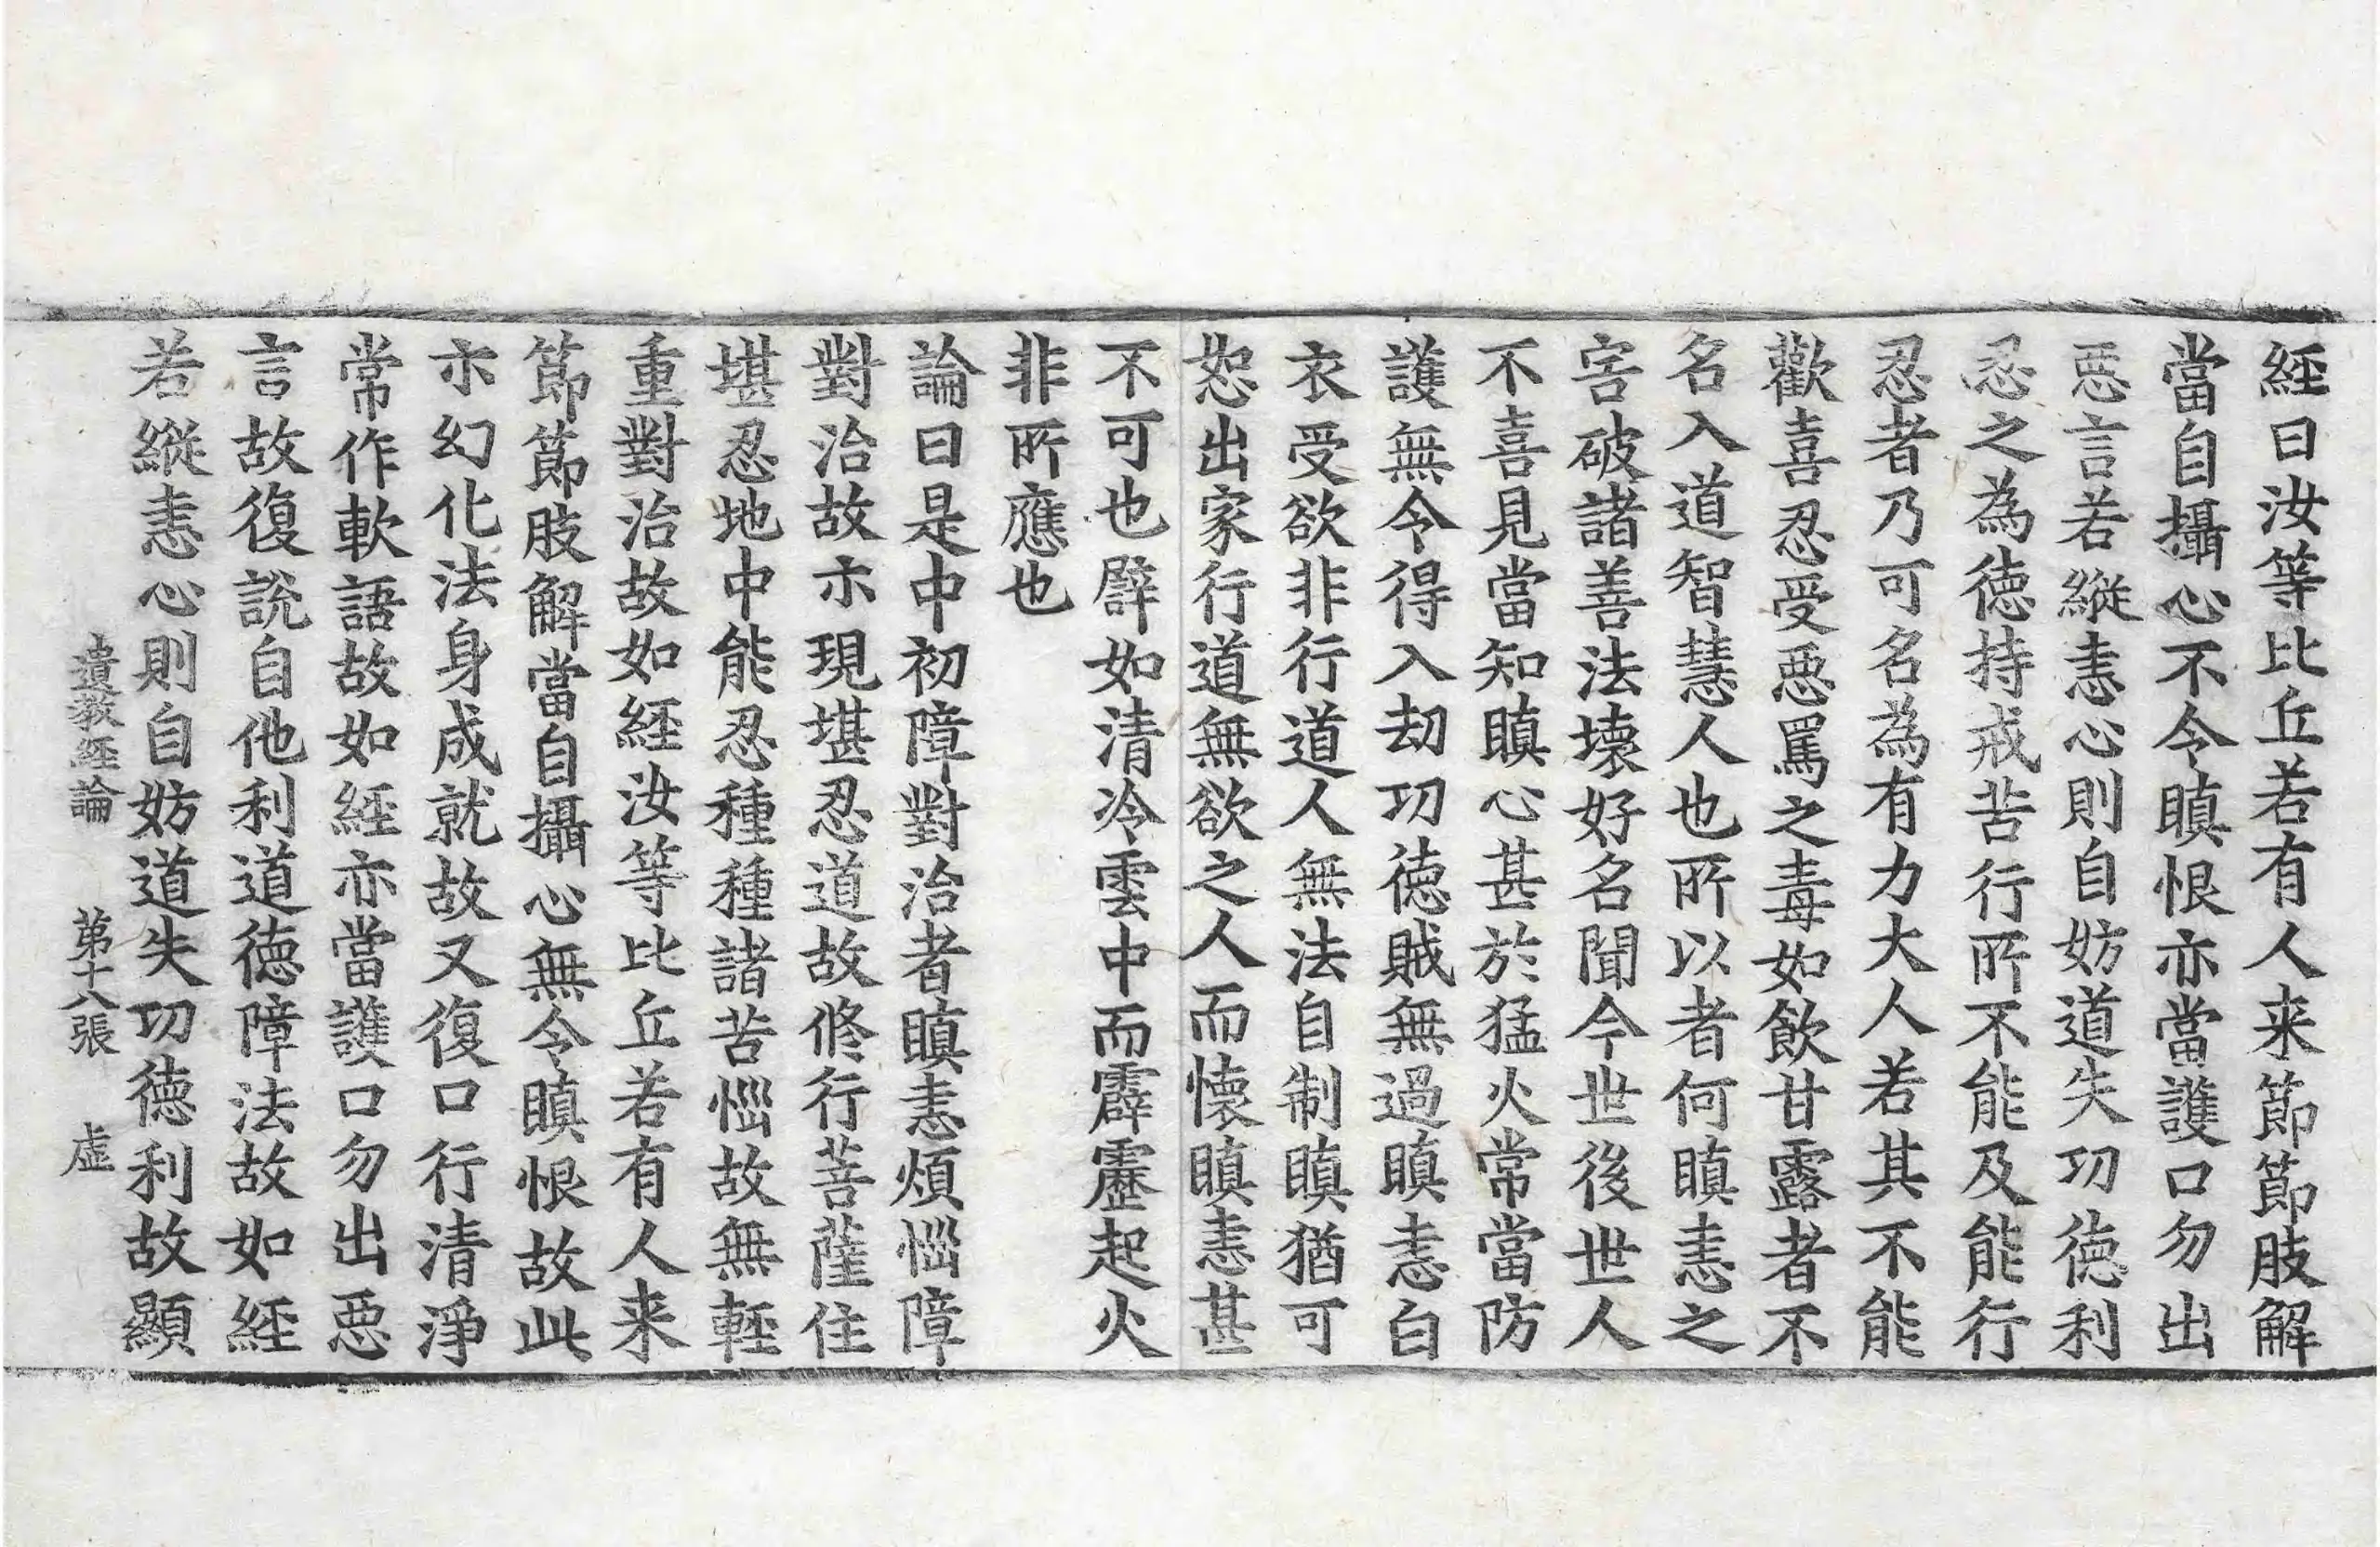 經曰汝等比丘若有人来節節肢解
當自攝心不令瞋恨亦當護口勿出
惡言若縱恚心則自妨道失功德利
忍之為德持戒苦行所不能及能行
忍者乃可名為有力大人若其不能
歡喜忍受惡罵之毒如飲甘露者不
名入道智慧人也所以者何瞋恚之
害破諸善法壞好名聞今世後世人
不喜見當知瞋心甚於猛火常當防
護無令得入劫功德賊無過瞋恚白
衣受欲非行道人無法自制瞋猶可
恕出家行道無欲之人而懷瞋恚甚
不可也譬如清冷雲中而霹靂起火
非所應也
論曰是中初障對治者瞋恚煩惱障
對治故示現堪忍道故修行菩薩住
堪忍地中能忍種種諸苦惱故無輕
重對治故如經汝等比丘若有人来
節節肢解當自攝心無令瞋恨故此
示幻化法身成就故又復口行清淨
常作軟語故如經亦當護口勿出惡
言故復說自他利道德障法故如經
若縱恚心則自妨道失功德利故顯
遺教經論 第十八張 虛